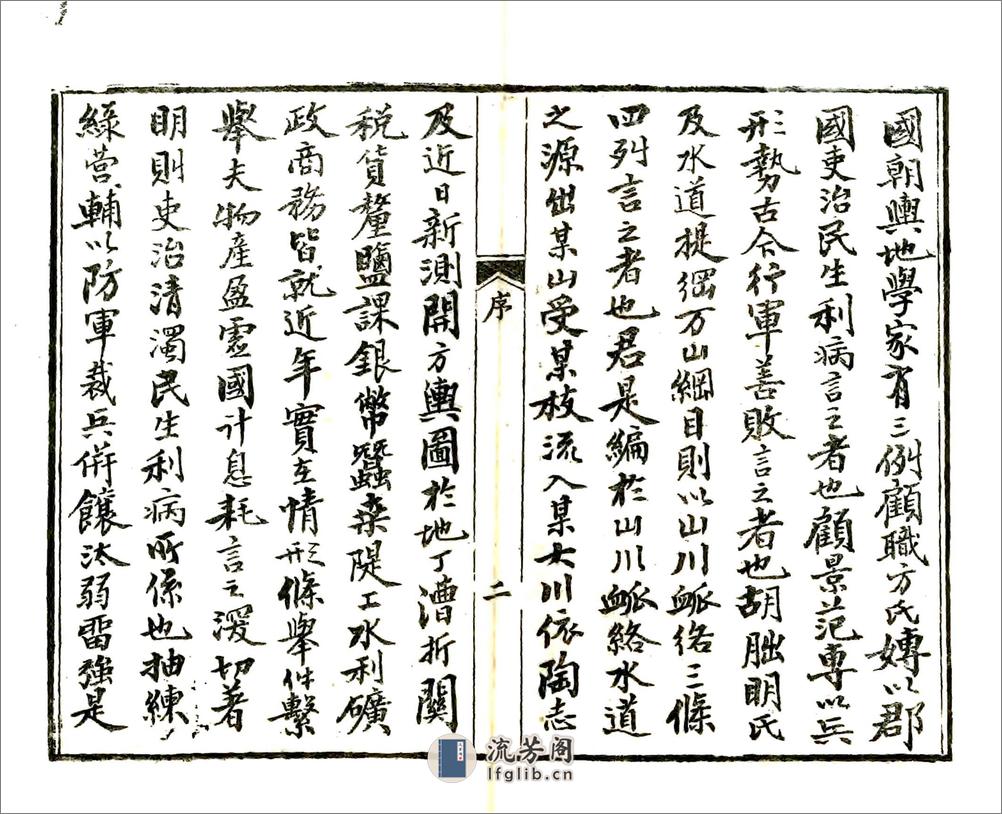 國朝輿地學家有三例顧職方氏專以郡
國吏治民生利病言之者也顧景范專以兵
形勢古今行軍善敗言之者也胡朏明氏
及水道提綱万山綱目則以山川脈络三條
四列言之者也君是編於山川脈絡水道
之源出某山受某枝流入某大川依陶志
序
二
及近日新測開方輿圖於地丁漕折關
税貨釐鹽課銀幣蠶桒隄工水利礦
政商務皆就近年實在情形條舉件繫
舉夫物產盈虛國计息耗言之深切著
明則吏治清濁民生利病所係也抽練
綠营輔以防軍裁兵併饟汰弱畱強是
流芳阁
lfglib.cn